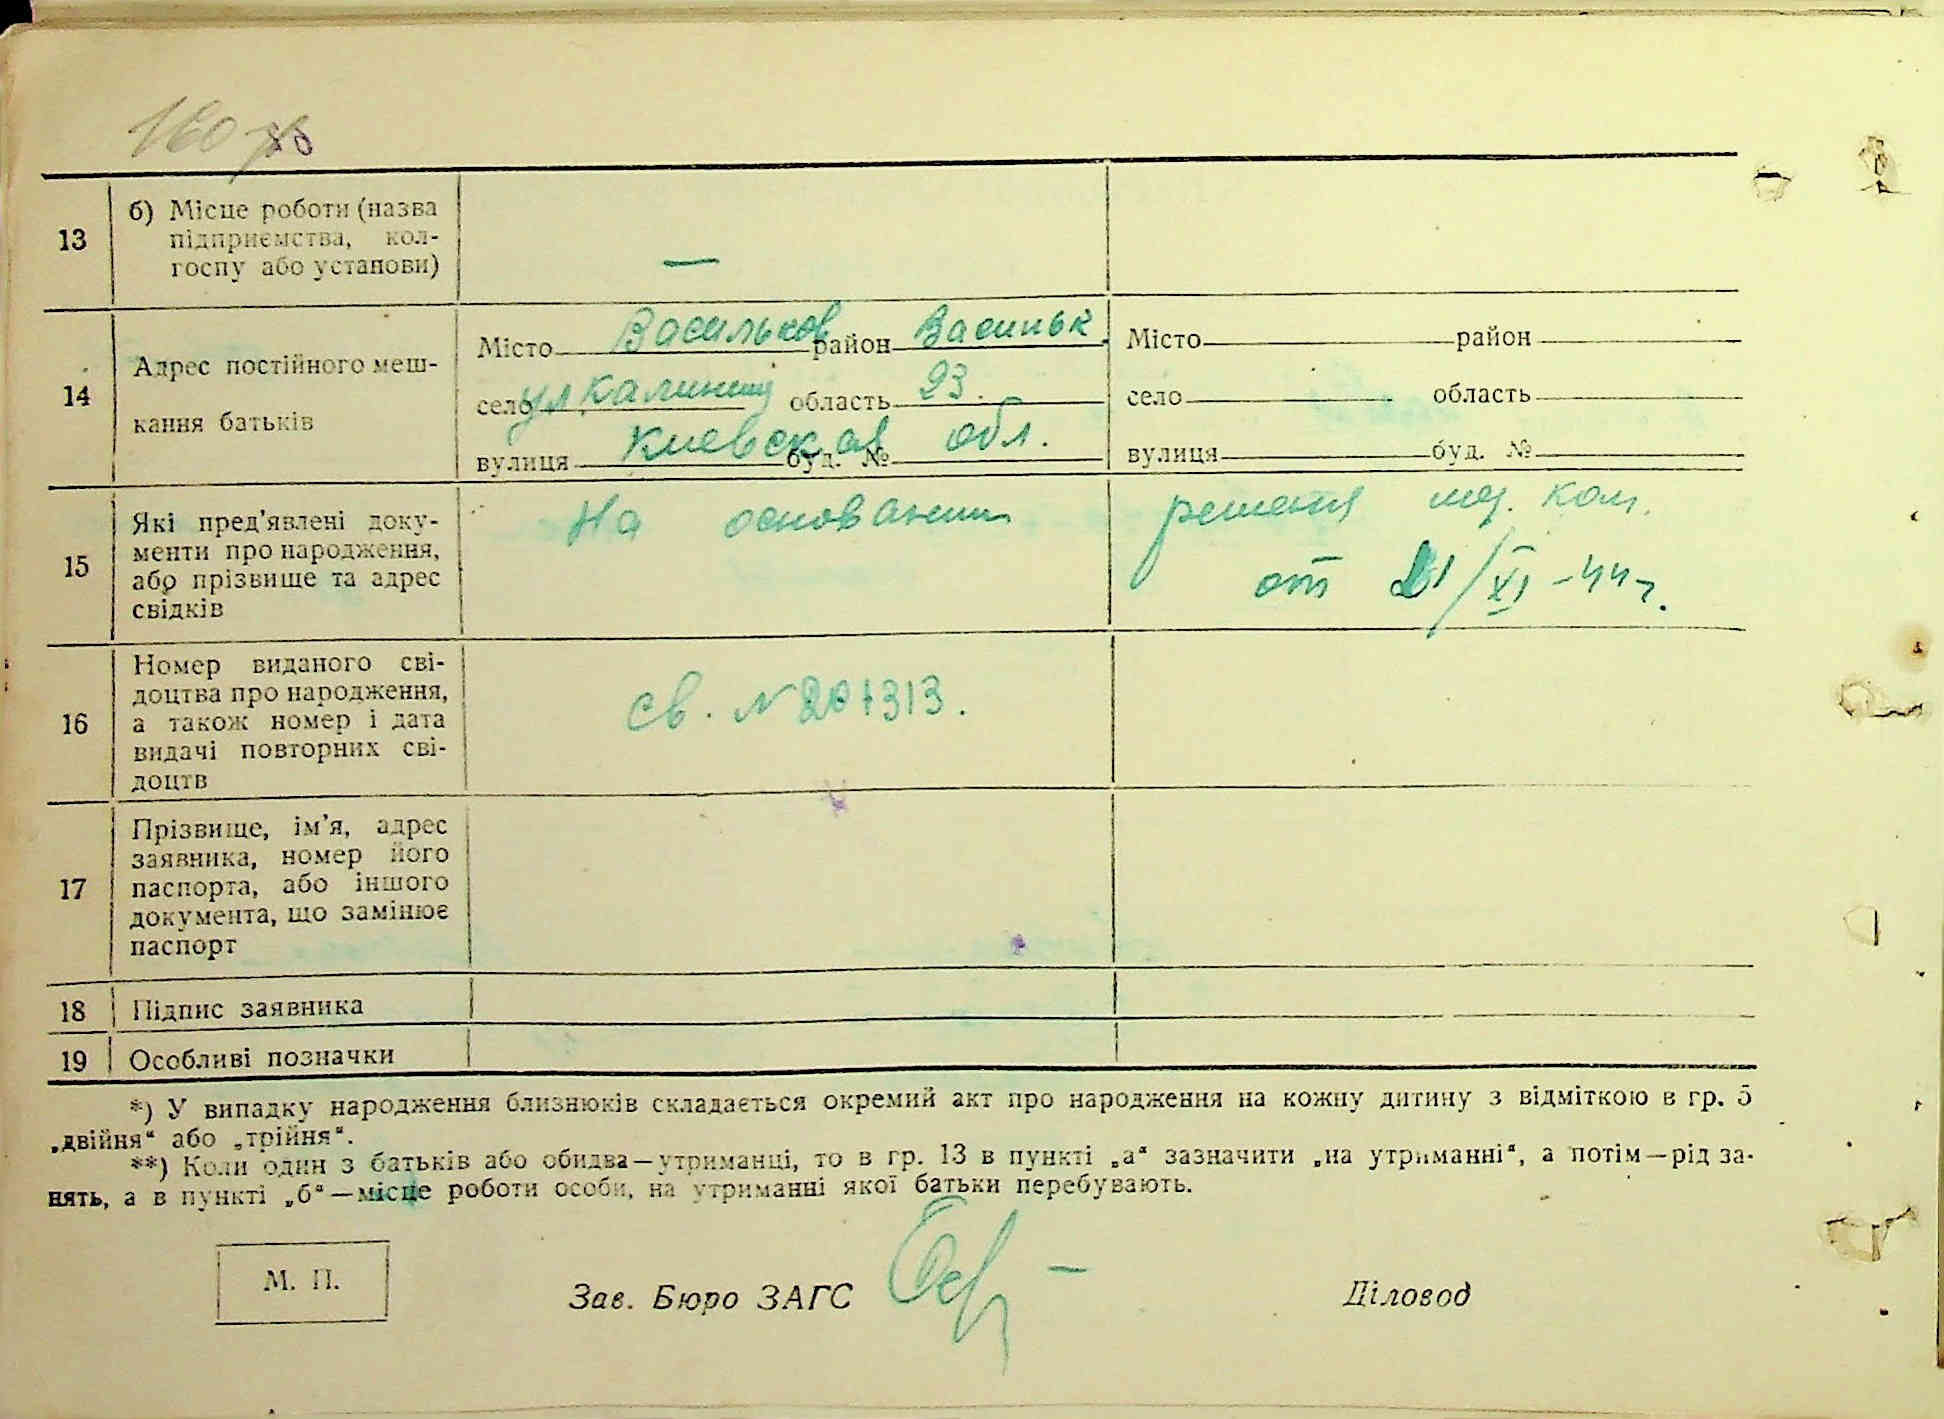 13
б) Місце роботи (назва
підприємства, кол-
госпу або установи)
—
14
Адрес постійного меш-
кання батьків
Місто Васильков район Васильк.
село ул Калинина область 23.
вулиця Киевская обл. буд. №
Місто район
село область
вулиця буд. №
15
Які пред'явлені доку-
менти про народження,
або прізвище та адрес
свідків
На основании решения мед. ком.
от 21/XI-44 г.
16
Номер виданого сві-
доцтва про народження,
а також номер і дата
видачі повторних сві-
доцтв
св. №
17
Прізвище, ім'я, адрес
заявника, номер його
паспорта, або іншого
документа, що замінює
паспорт
18
Підпис заявника
19
Особливі позначки
*) У випадку народження близнюків складається окремий акт про народження на кожну дитину з відміткою в гр. 5
„двійня“ або „трійня“.
**) Коли один з батьків або обидва—утриманці, то в гр. 13 в пункті „а“ зазначити „на утриманні“, а потім—рід за-
нять, а в пункті „б“—місце роботи особи, на утриманні якої батьки перебувають.
М. П.
Зав. Бюро ЗАГС
Діловод